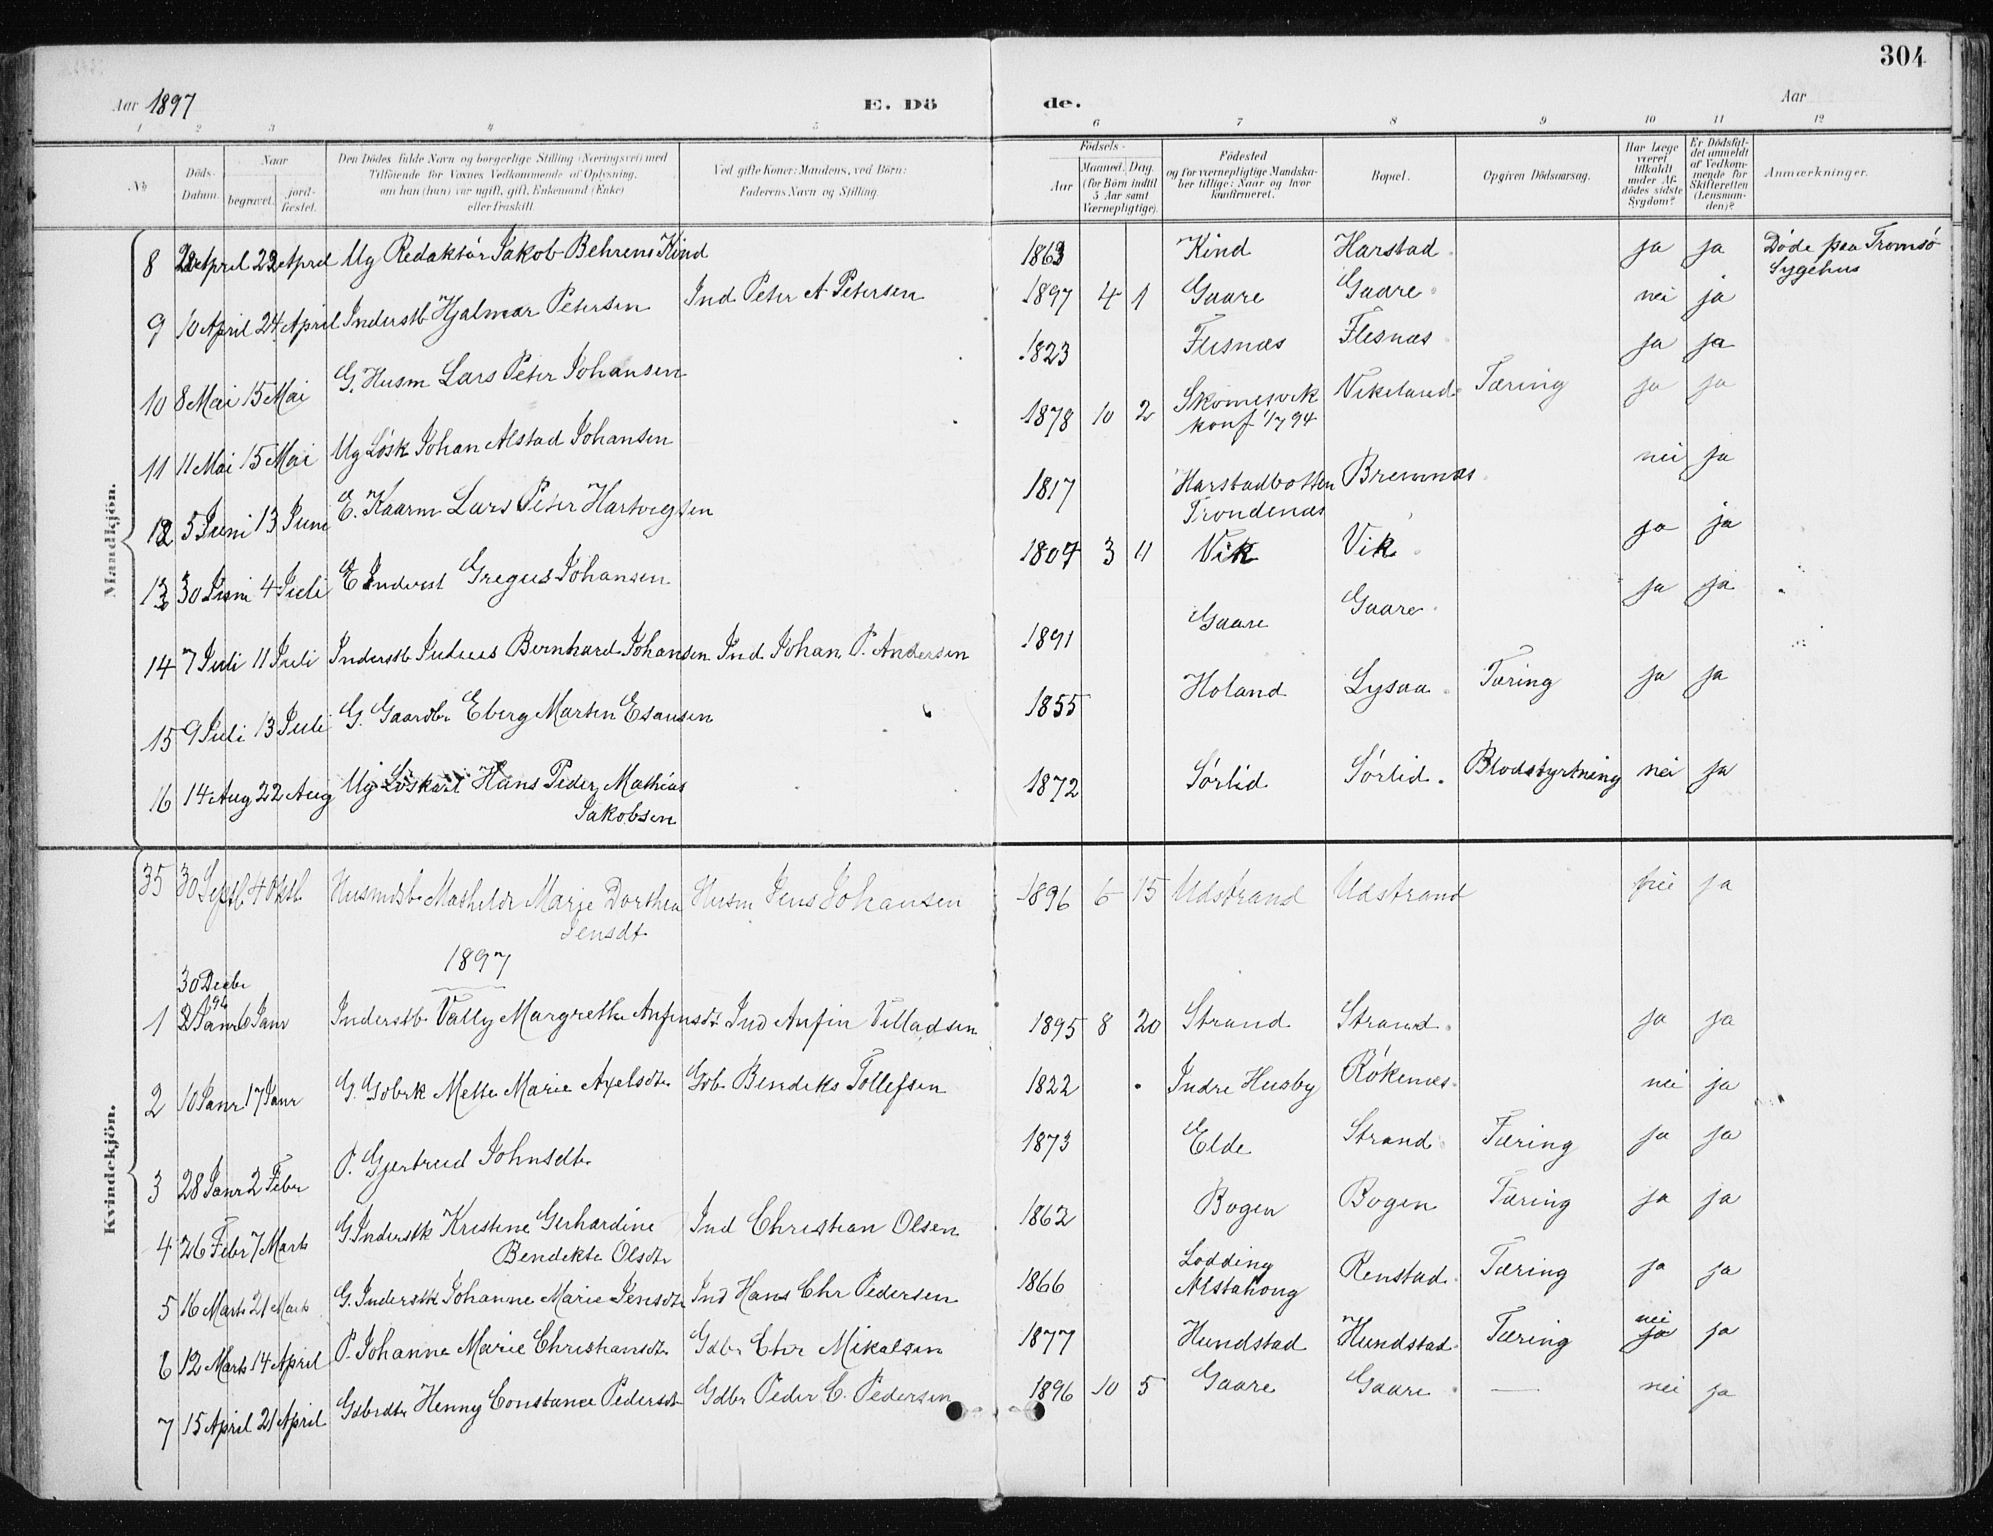 304
Aar 1897 E. Dö de. Aar
1 2 3 4 5 6 7 8 9 10 11 12
No Döds-Datum. Naar begravet. jord-fæstet. Den Dödes fulde Navn og borgerlige Stilling (Næringsvei) med Tilföiende for Voxnes Vedkommende af Oplysning, om han (hun) var ugift, gift, Enkemand (Enke) eller fraskilt Ved gifte Koner: Mandens, ved Börn: Faderens Navn og Stilling. Födsels- Aar Maaned. Dag. (for Börn indtil 5 Aar samt Værnepligtige). Födested og for værnepligtige Mandskaber tillige: Naar og hvor konfirmeret. Bopæl. Opgiven Dödsaarsag. Har Læge været tilkaldt under Afdödes sidste Sygdom? Er Dödsfaldet anmeldt af Vedkommende for Skifteretten (Lensmanden)? Anmærkninger.
Mandkjön.
8 April 22 April Ug Redaktör Jakob Behrens Kind 1863 Kind Harstad ja ja Döde paa Tromsö Sygehus
9 10 April 24 April Inderstb Hjalmar Petersen Ind Peter A Petersen 1897 4 1 Gaare Gaare nei ja
10 8 Mai 15 Mai G. Husm Lars Peter Johansen 1823 Flesnæs Flesnæs ja ja
11 11 Mai 15 Mai Ug Løsk Johan Alstad Johansen 1878 10 2 Skomesvik konf 17 94 Vikeland Tæring ja ja
12 5 Juni 13 Juni E. Kaarm Lars Peter Hartvigsen 1817 Harstadbotten Trondenæs Bremnæs nei ja
13 30 Juni 4 Juli E Inderst Gregus Johansen 1807 3 11 Vik Vik ja ja
14 7 Juli 11 Juli Inderstb Julius Bernhard Johansen Ind Johan P. Andersen 1891 Gaare Gaare ja ja
15 9 Juli 13 Juli G. Gaardbr Eberg Martin Esausen 1855 Holand Lysaa Tæring ja ja
16 14 Aug 22 Aug Ug Løskarl Hans Peder Mathias Jakobsen 1872 Sörlid Sörlid Blodstyrtning nei ja
Kvindekjön.
35 30 Septb 4 Oktb Husmdsb Mathilde Marje Dorthea Jensdt Husm Jens Johansen 1896 6 15 Udstrand Udstrand nei ja
1897
30 Decbr 96
1 Janr Janr Inderstb Vally Margrethe Anfinsdt Ind Anfin Villadsen 1895 8 20 Strand Strand ja ja
2 10 Janr 17 Janr G. Gdbrk Mette Marie Axelsdtr Gdb. Bendiks Tollefsen 1822 Indre Husby Rökenæs nei ja
3 28 Janr 2 Febr P. Gjertrud Johnsdtr 1873 Elde Strand Tæring ja ja
4 26 Febr 7 Marts G Inderstk Kristine Gerhardine Bendikte Olsdtr Ind Christian Olsen 1862 Bogen Bogen Tæring ja ja
5 16 Marts 21 Marts G. Inderstk Johanne Marie Jensdtr Ind Hans Chr Pedersen 1866 Lødding Alstahoug Renstad Tæring ja ja
6 12 Marts 14 April P. Johanne Marie Christiansdtr Gdbr Chr Mikalsen 1877 Hundstad Hundstad Tæring nei ja ja
7 15 April 21 April Gdbrdtr Henny Constance Pedersdt Gdbr Peder C. Pedersen 1896 10 5 Gaare Gaare — nei ja